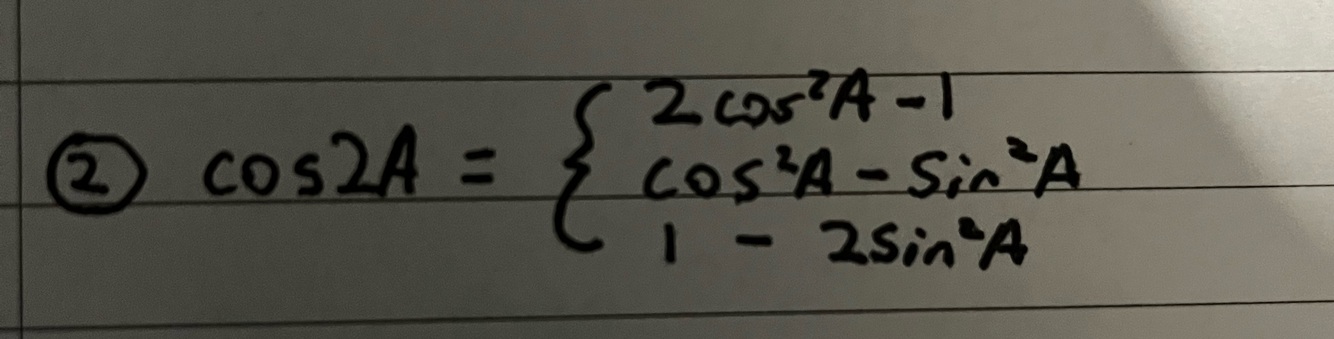 ② cos2A = { 2cos²A - 1
cos²A - Sin²A
1 - 2Sin²A